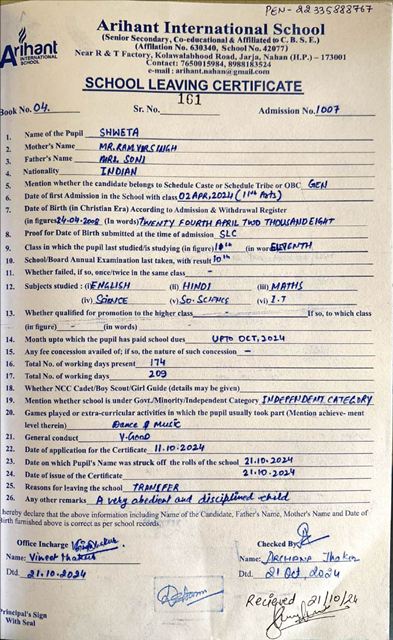 PEN- 22335888767
Arihant
INTERNATIONAL
SCHOOL
Arihant International School
(Senior Secondary, Co-educational & Affiliated to C. B. S. E.)
(Affilation No. 630340, School No. 42077)
Near R & T Factory, Kolawalabhood Road, Jarja, Nahan (H.P.) – 173001
Contact: 7650015984, 8988183524
e-mail : arihant.nahan@gmail.com
SCHOOL LEAVING CERTIFICATE
Book No. 04. Sr. No. 161 Admission No. 1007
1. Name of the Pupil SHWETA
2. Mother's Name MR. RAMVIR SINGH
3. Father's Name MRS. SONI
4. Nationality INDIAN
5. Mention whether the candidate belongs to Schedule Caste or Schedule Tribe or OBC GEN
6. Date of first Admission in the School with class 02 APR, 2024 (11th Arts)
7. Date of Birth (in Christian Era) According to Admission & Withdrawal Register
(in figures) 24-04-2008 (In words) TWENTY FOURTH APRIL TWO THOUSAND EIGHT
8. Proof for Date of Birth submitted at the time of admission SLC
9. Class in which the pupil last studied/is studying (in figure) 11th (in words) ELEVENTH
10. School/Board Annual Examination last taken, with result 10th
11. Whether failed, if so, once/twice in the same class -
12. Subjects studied : (i) ENGLISH (ii) HINDI (iii) MATHS
(iv) SCIENCE (v) SO. SCIENCE (vi) I.T
13. Whether qualified for promotion to the higher class - If so, to which class
(in figure) - (in words) -
14. Month upto which the pupil has paid school dues UPTO OCT, 2024
15. Any fee concession availed of; if so, the nature of such concession -
16. Total No. of working days present 174
17. Total No. of working days 209
18. Whether NCC Cadet/Boy Scout/Girl Guide (details may be given)
19. Mention whether school is under Govt./Minority/Independent Category INDEPENDENT CATEGORY
20. Games played or extra-curricular activities in which the pupil usually took part (Mention achieve- ment
level therein) Dance & Music
21. General conduct V. GOOD
22. Date of application for the Certificate 11.10.2024
23. Date on which Pupil's Name was struck off the rolls of the school 21.10.2024
24. Date of issue of the Certificate 21.10.2024
25. Reasons for leaving the school TRANSFER
26. Any other remarks A very obedient and disciplined child
hereby declare that the above information including Name of the Candidate, Father's Name, Mother's Name and Date of
Birth furnished above is correct as per school records.
Office Incharge Checked By
Name: Vineet Thakur Name: ARCHANA Thakur
Dtd. 21.10.2024 Dtd. 21 Oct, 2024
Recieved 21/10/24
Principal's Sign
With Seal